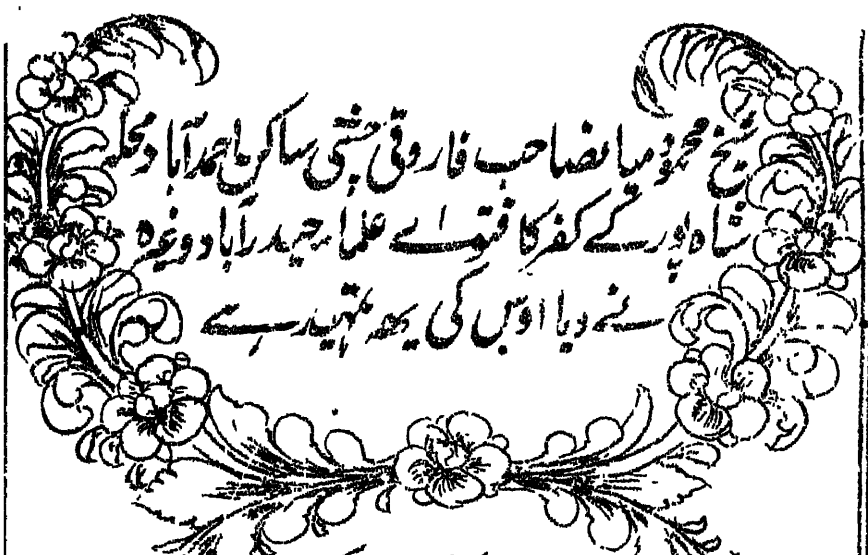 شیخ محمود میانصاحب فاروقی چشتی ساکن احمدآباد محلہ
شاہ پور کے کفر کا فتویٰ اے علماء حیدرآباد وغیرہ
نے دیا اوس کی یھ تمہید ہے